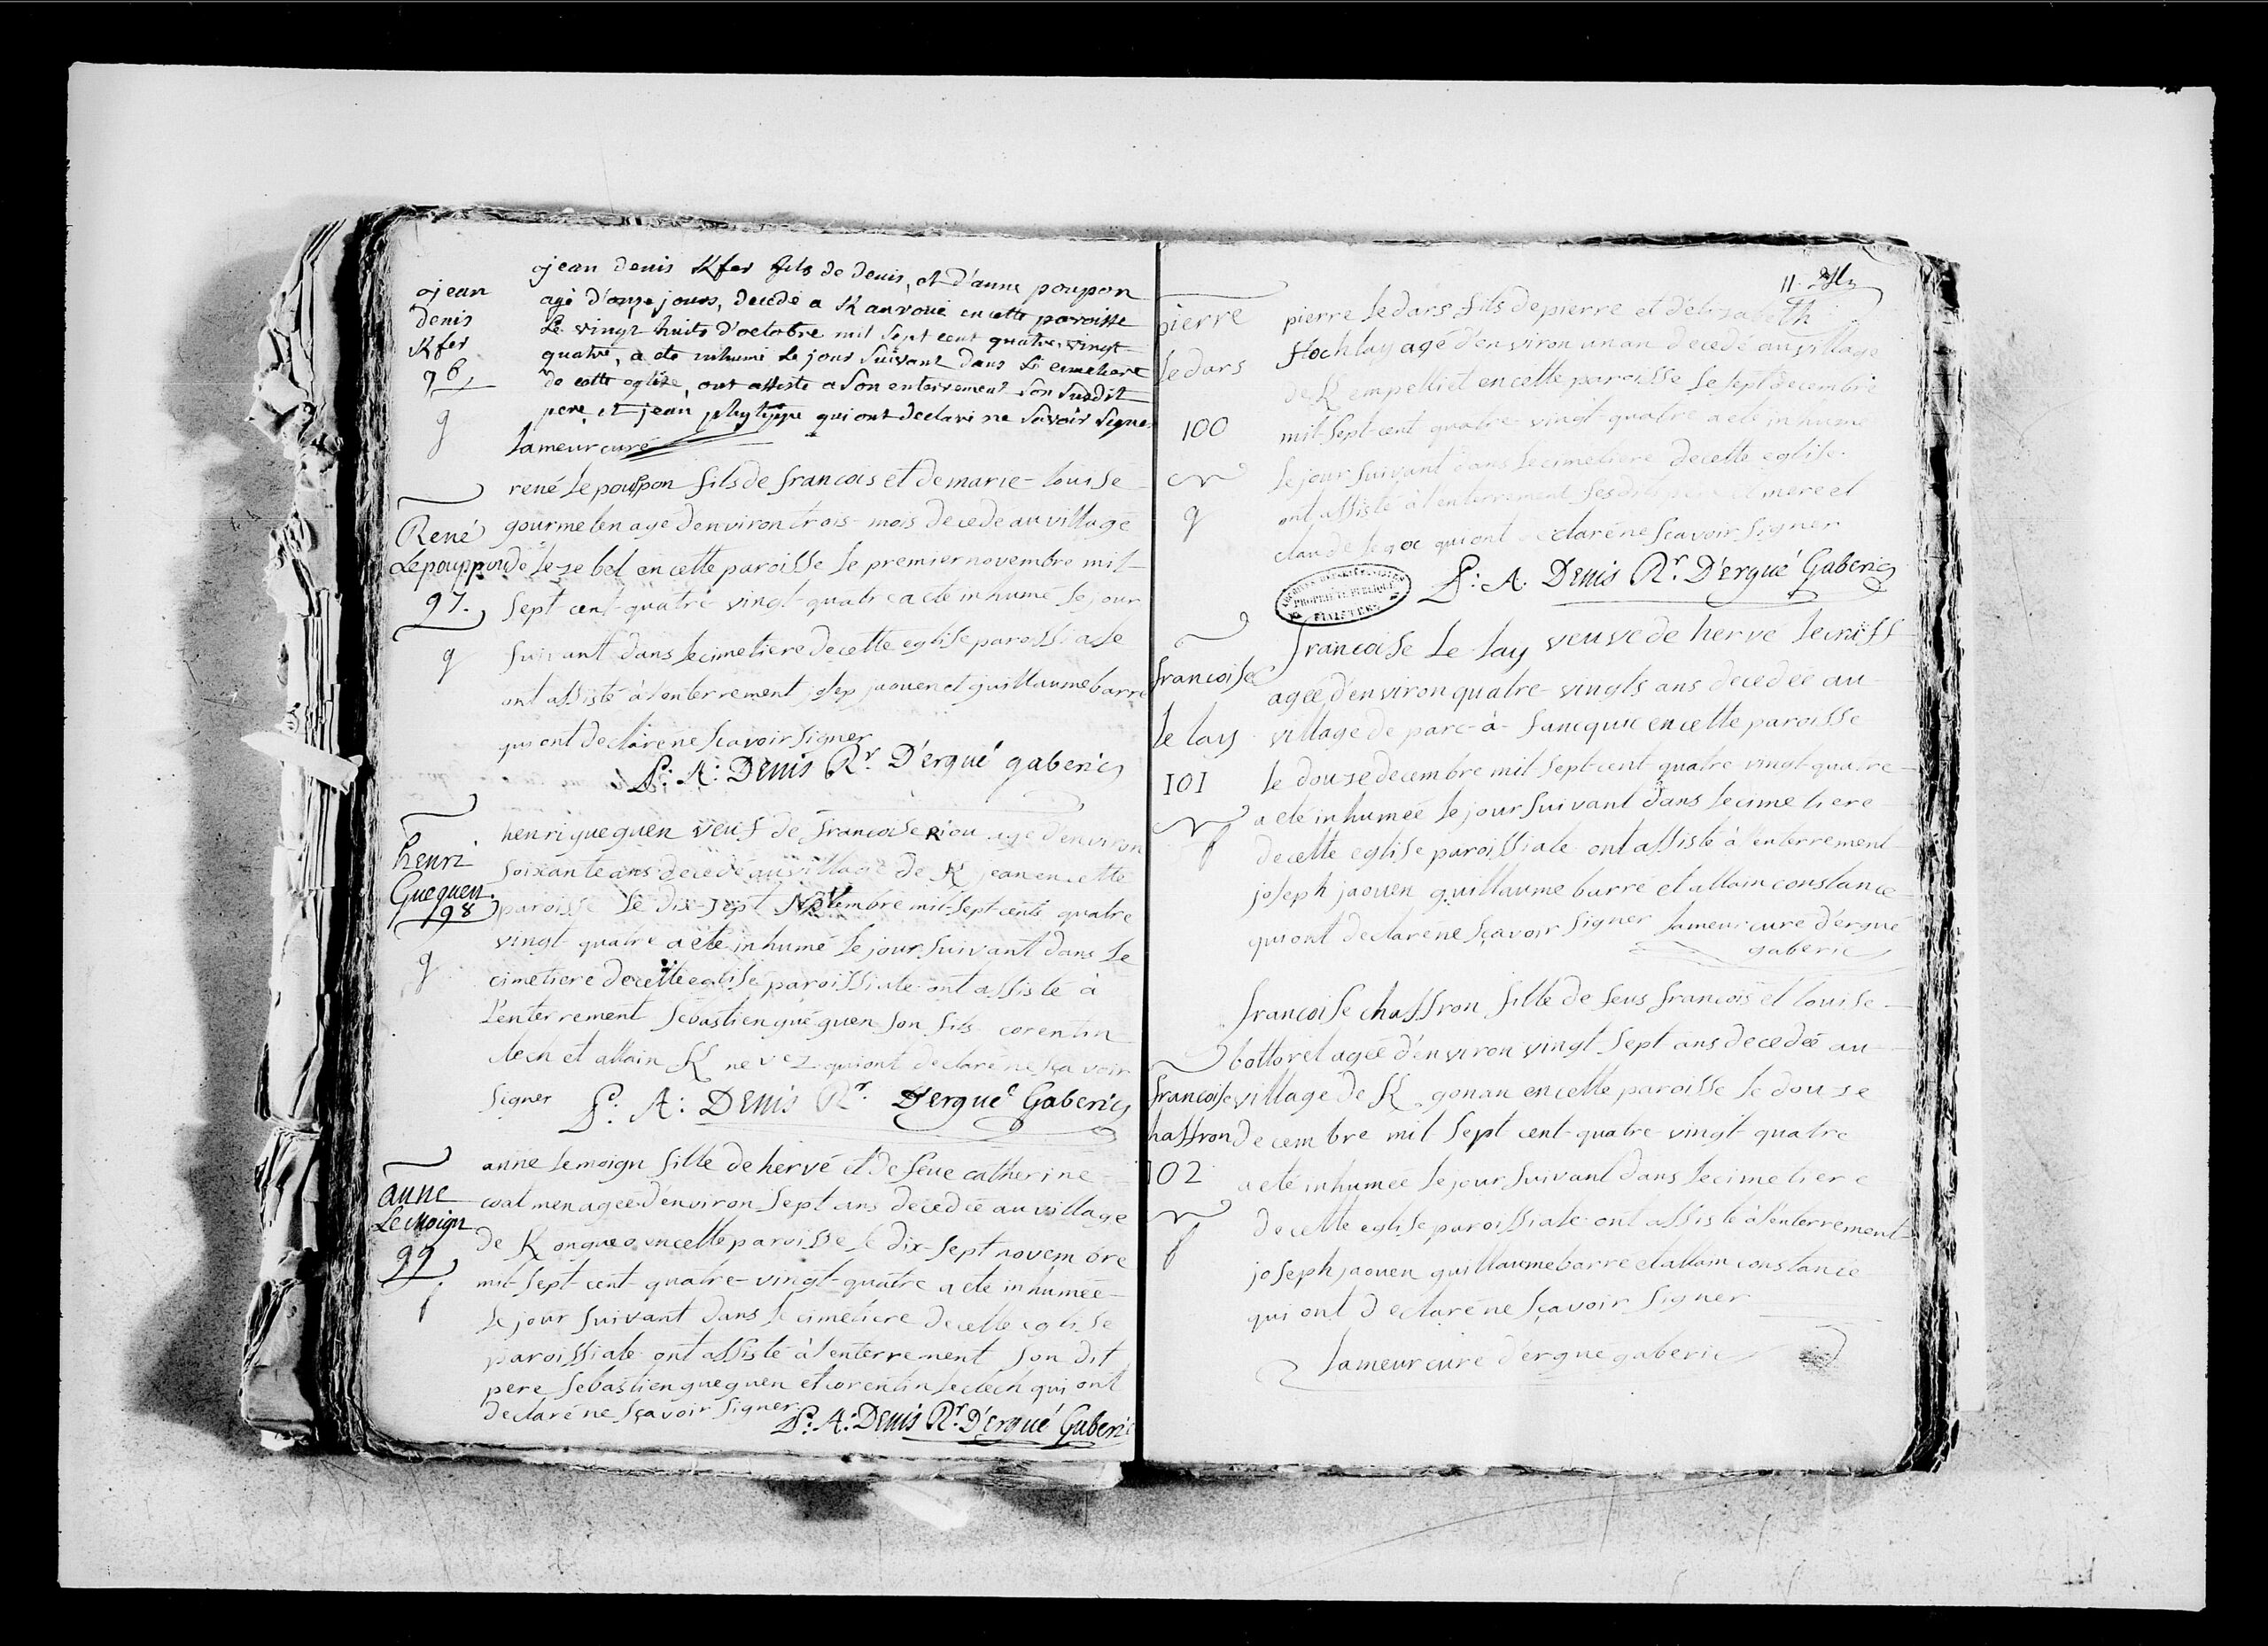 jean
denis
Kfer
96
g
jean denis Kfer fils de denis, et d'anne poupon
agé d'onze jours, decedé a K anvoué en cette paroisse
Le vingt huits d'octobre mil sept cent quatre vingt
quatre, a eté inhumé le jour suivant dans Le cimetiere
de cette eglise, ont assisté a son enterrement son susdit
pere et jean phylippe qui ont declaré ne savoir signer
Lameur curé
René
Lepouppon
97.
g
rené le pouppon fils de francois et de marie-louise
gourmelen agé d'environ trois-mois decedé au village
de lezebel en cette paroisse le premier novembre mil
sept cent quatre vingt quatre a eté inhumé le jour
suivant dans le cimetiere de cette eglise paroissiale
ont assisté à l'enterrement josep jaouen et guillaume barre
qui ont declaré ne sçavoir signer
A: Denis Rr. D'ergué gaberic
henri
Gueguen
98
g
henri gueguen veuf de francoise Riou agé d'environ
soixante ans decedé au village de K jean en cette
paroisse Le dix-sept Novembre mil sept cents quatre
vingt quatre a eté inhumé le jour suivant dans le
cimetiere de cette eglise paroissiale ont assisté à
l'enterrement sebastien guéguen son fils corentin
clech et allain K nevez qui ont declaré ne sçavoir
signer A: Denis Rr. D'ergué Gaberic
anne
Le Moign
99
f
anne lemoign fille de hervé et de feue catherine
coatmen agée d'environ sept ans decedée au village
de K ongueo en cette paroisse le dix-sept novembre
mil-sept-cent-quatre-vingt-quatre a eté inhumée
le jour suivant dans le cimetiere de cette eglise
paroissiale ont assisté à l'enterrement son dit
pere sebastien gueguen et corentin le clech qui ont
declaré ne sçavoir signer.
A: Denis Rr. D'ergué Gaberic
11.
pierre
le dars
100
g
pierre le dars fils de pierre et d'elizabeth
flochlay agé d'environ un an decedé au village
de K empelliet en cette paroisse le sept decembre
mil-sept-cent quatre vingt-quatre a eté inhumé
le jour suivant dans le cimetiere de cette eglise.
ont assisté à l'enterrement ses dits pere et mere et
claude le goc qui ont declaré ne sçavoir signer
A. Denis Rr. D'ergué Gaberic
PROPRIETE PUBLIQUE
FINISTERE
francoise
le lay
101
f
francoise Le lay veuve de herve
agée d'environ quatre-vingts ans decedée au
village de parc-à-lancquic en cette paroisse
le douze decembre mil-sept-cent-quatre vingt-quatre
a eté inhumée le jour suivant dans le cimetiere
de cette eglise paroissiale ont assisté à l'enterrement
joseph jaouen guillaume barre et allain constance
qui ont declaré ne sçavoir signer lameur curé d'ergué
gaberic
francoise
haffron
102
f
francoise chaffron fille de feus francois et louise
bottorel agée d'environ vingt sept ans decedée au
village de K gonan en cette paroisse le douze
decembre mil sept cent quatre vingt quatre
a eté inhumée le jour suivant dans le cimetiere
de cette eglise paroissiale ont assisté à l'enterrement
joseph jaouen guillaume barre et allain constance
qui ont declaré ne sçavoir signer
lameur curé d'ergué gaberic